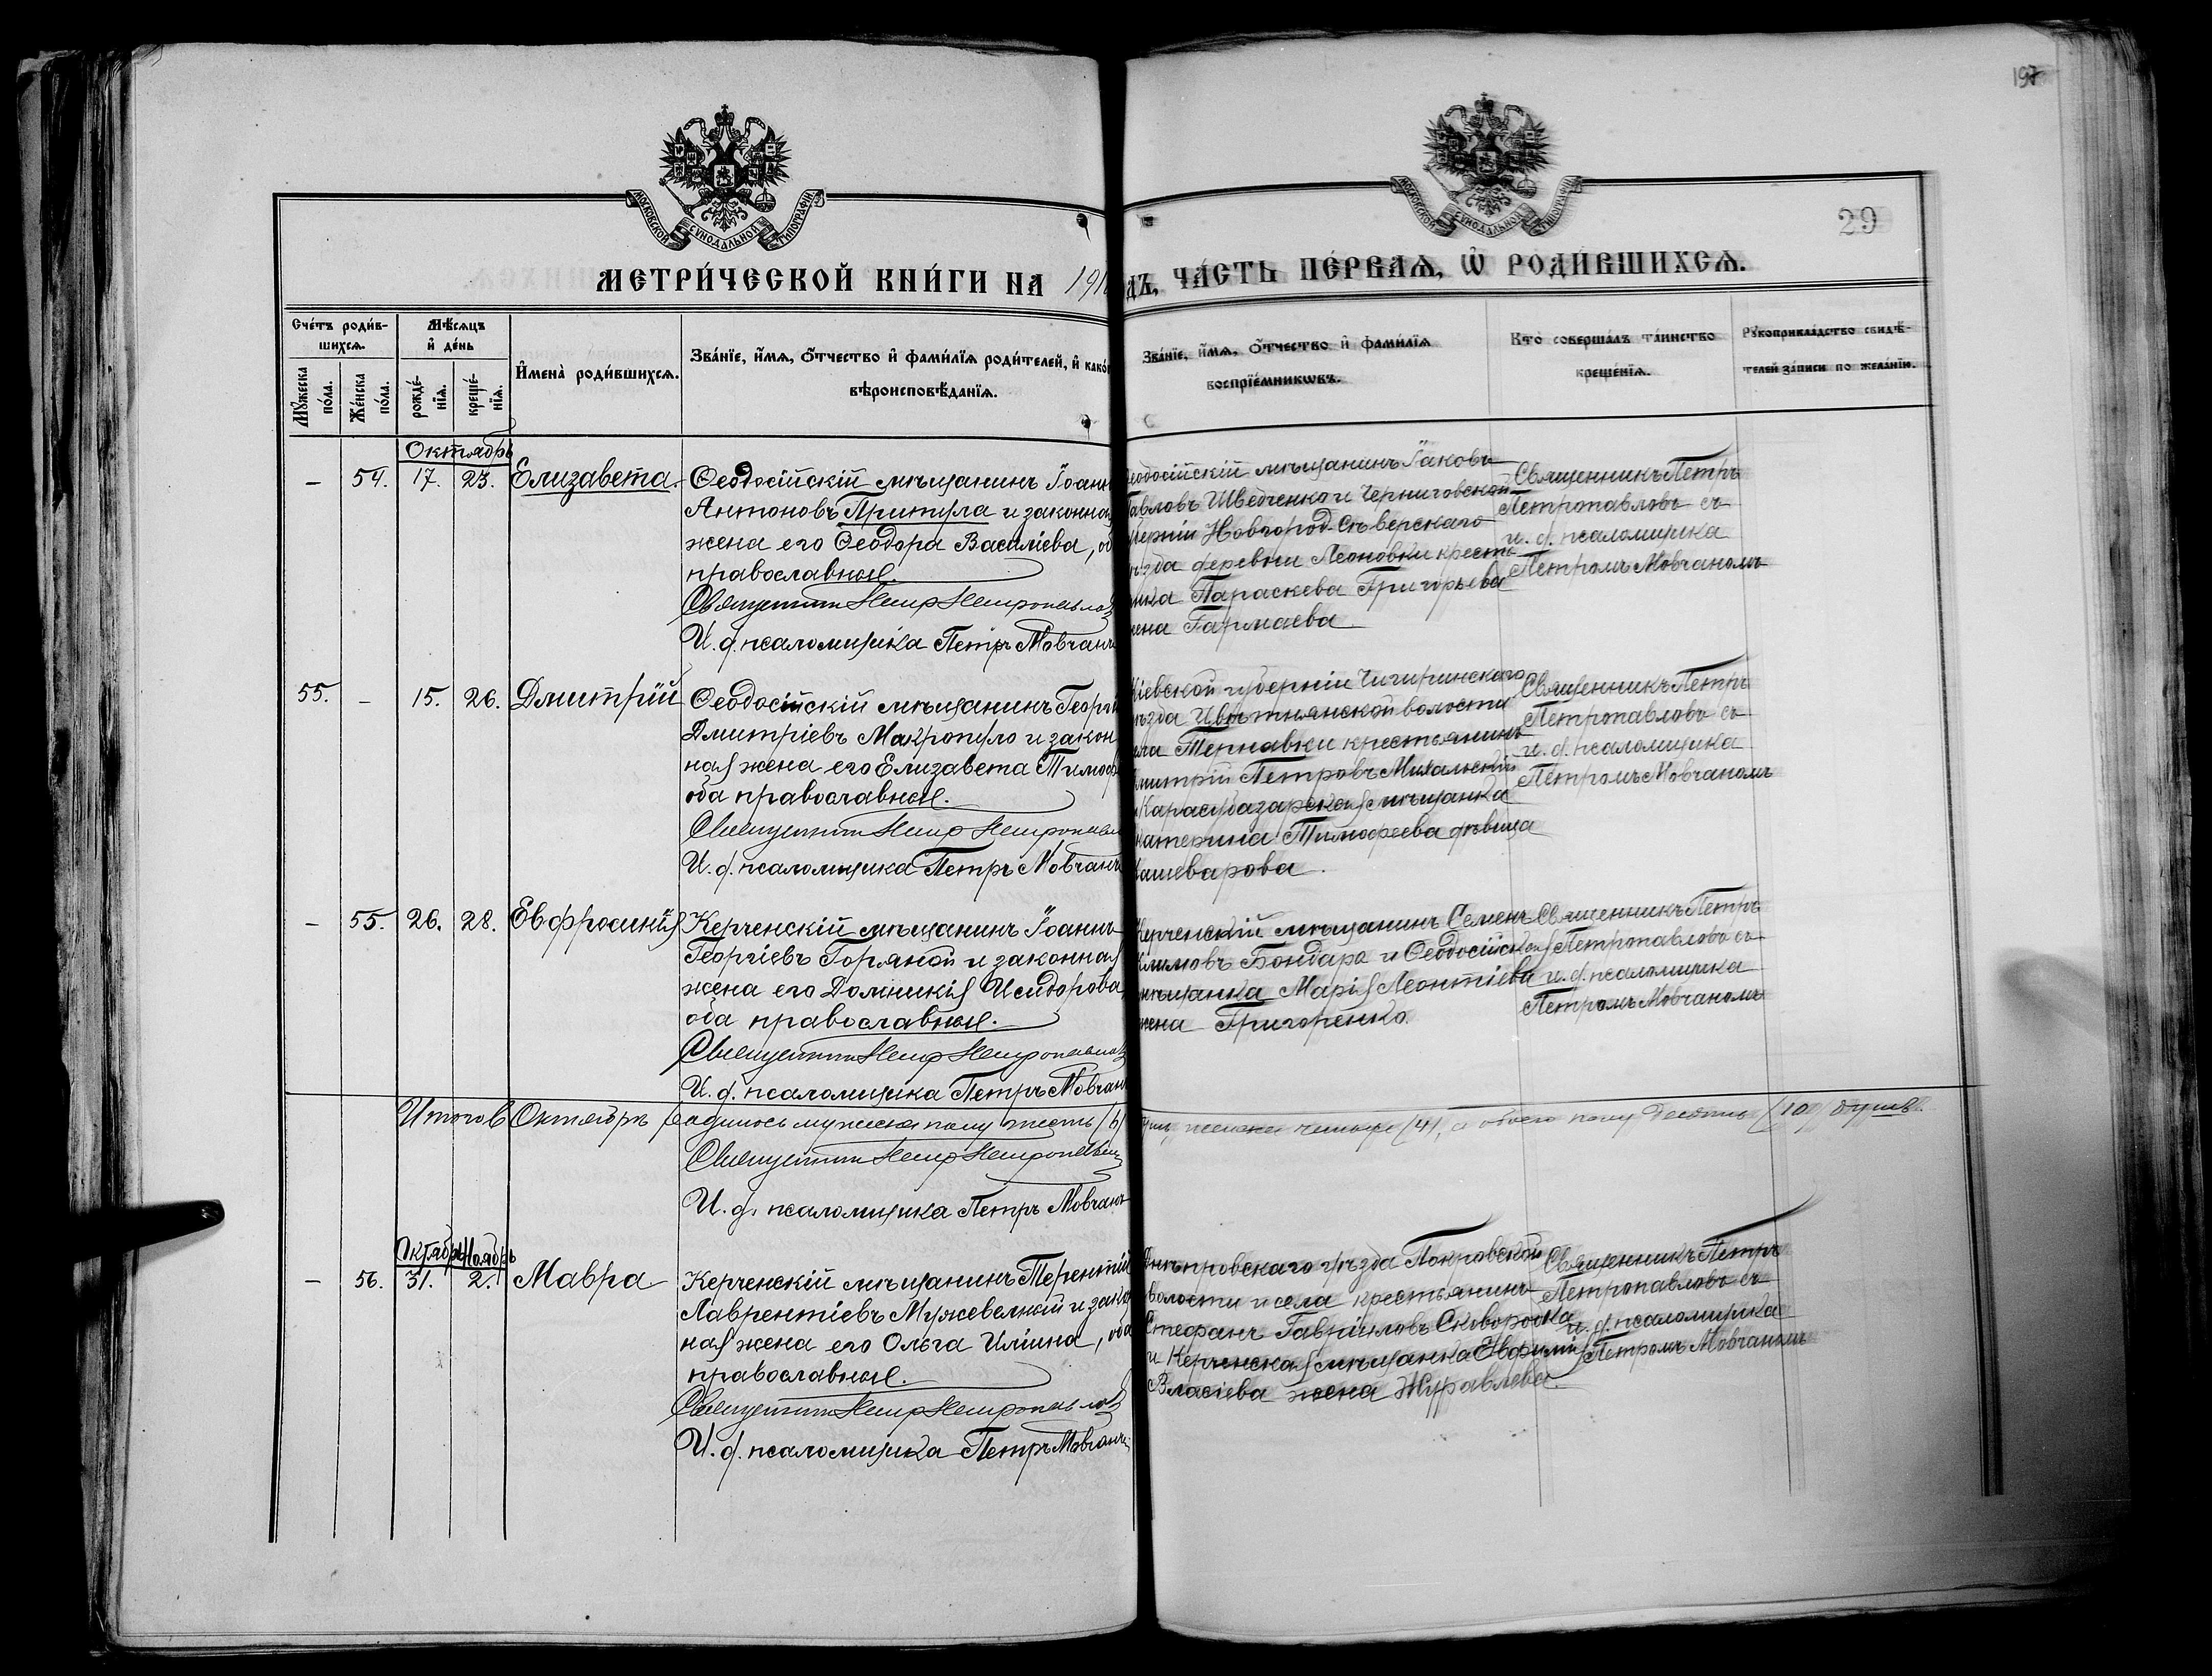 197
МОСКОВСКОЙ СѴНОДАЛЬНОЙ ТИПОГРАФІИ
МОСКОВСКОЙ СѴНОДАЛЬНОЙ ТИПОГРАФІИ
29
МЕТРИ́ЧЕСКОЙ КНИ́ГИ НА 191
ДЪ, ЧА́СТЬ ПЕ́РВАѦ, Ѡ҆ РОДИ́ВШИХСѦ.
Сче́тъ роди́в-
шихсѧ.
Мꙋ́жеска
по́ла.
Же́нска
по́ла.
Мѣ́сѧцъ
и҆ де́нь
рожде́-
нїѧ.
креще́-
нїѧ.
И҆мена̀ роди́вшихсѧ.
Зва́нїе, и҆́мѧ, ѻ҆́тчество и҆ фами́лїѧ роди́телей, и҆ како́
вѣроисповѣ́данїѧ.
Зва́нїе, и҆́мѧ, ѻ҆́тчество и҆ фами́лїѧ
воспрїе́мникѡвъ.
Кто̀ соверша́лъ та́инство
креще́нїѧ.
Рꙋкоприкла́дство свидѣ́-
телей за́писи по жела́нїю.
Октябрь
– 54. 17. 23. Елизавета.
Ѳеодосійскій мѣщанинъ Іоанн
Антоновъ Притула и законная
жена его Ѳеодора Василіева, об
православные.
Священникъ Петр Петропавлов
И. д. псаломщика Петръ Мовчанъ
еодосійскій мѣщанинъ Іаковъ
авловъ Шведченко и Черниговской
берніи Новгород-Сѣверскаго
ѣзда деревни Леоновки кресть
нка Параскева Григорьева
ена Гармаева
Священникъ Петръ
Петропавловъ съ
и. д. псаломщика
Петромъ Мовчаномъ
55. – 15. 26. Дмитрій
Ѳеодосійскій мѣщанинъ Георгі
Дмитріевъ Макропуло и закон
ная жена его Елизавета Тимоф
оба православные.
Священникъ Петр Петропавл
И. д. псаломщика Петръ Мовчанъ
іевской губерніи Чигиринскаго
ѣзда Цвѣтнянской волости
ла Тернавки крестьянинъ
митрій Петровъ Михальскій
Карасубазарская мѣщанка
катерина Тимофеева дѣвица
ашеварова.
Священникъ Петръ
Петропавловъ съ
и. д. псаломщика
Петромъ Мовчаномъ
– 55. 26. 28. Евфросинія
Керченскій мѣщанинъ Іоаннъ
Георгіевъ Горяной и законная
жена его Домникія Исидорова,
оба православные.
Священникъ Петр Петропавлов
И. д. псаломщика Петръ Мовчан
Керченскій мѣщанинъ Семенъ
Климовъ Бондарь и Ѳеодосійская
мѣщанка Марія Леонтіева
жена Григоренко.
Священникъ Петръ
Петропавловъ съ
и. д. псаломщика
Петромъ Мовчаномъ
Итого в Октябрѣ родилось мужска полу шесть /6/
женска четыре /4/, а обоего полу десять /10/ душъ.
Священникъ Петр Петропавлов
И. д. псаломщика Петръ Мовчанъ
Октябрь Ноябрь
– 56. 31. 2. Мавра
Керченскій мѣщанинъ Терентій
Лаврентіевъ Мужевелкий и закон
ная жена его Ольга Иліина, оба
православные.
Священникъ Петр Петропавлов
И. д. псаломщика Петръ Мовчанъ
Днѣпровскаго уѣзда Покровской
волости и села крестьянинъ
Стефанъ Гавріиловъ Сковородка
и Керченская мѣщанка Евфимія
Власіева жена Журавлева.
Священникъ Петръ
Петропавловъ съ
и. д. псаломщика
Петромъ Мовчаномъ